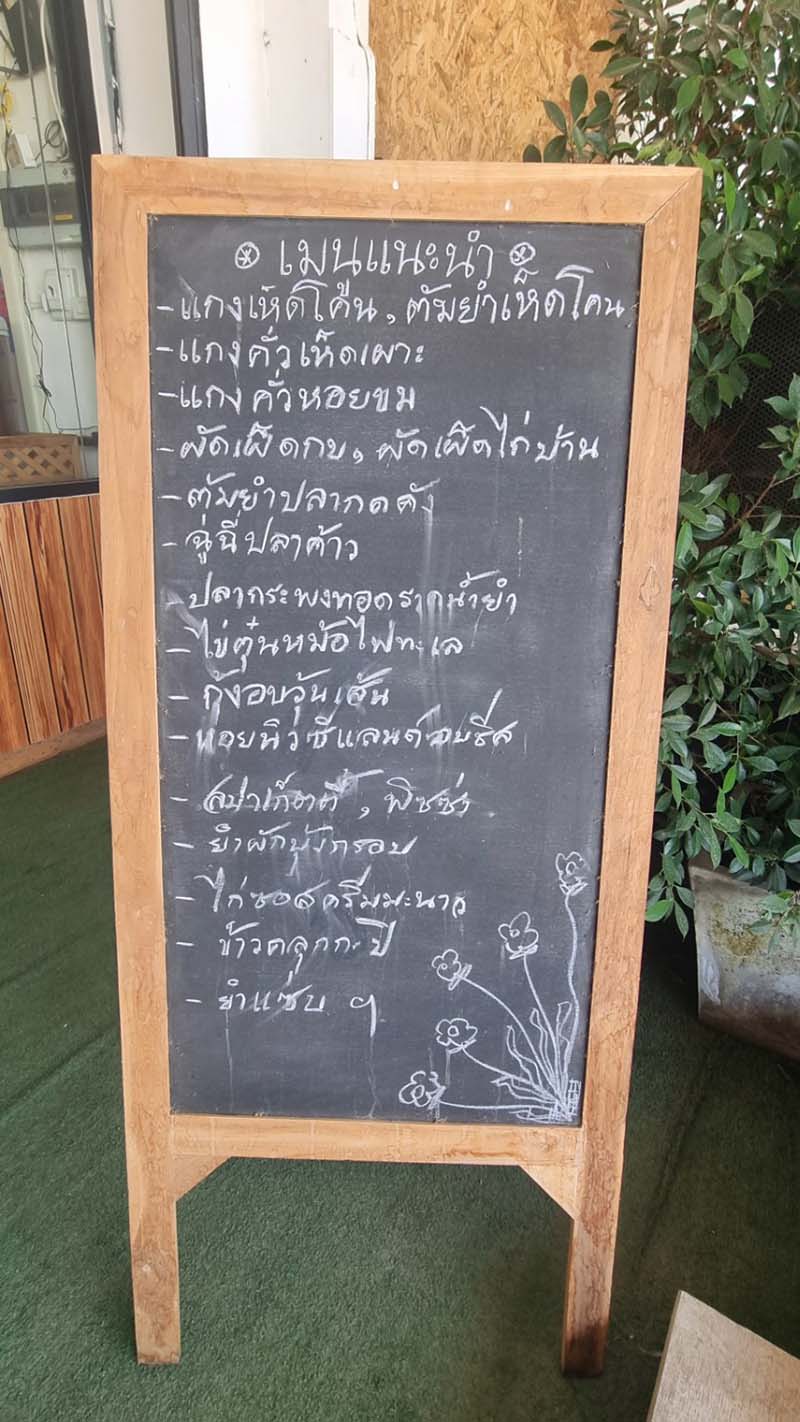 เมนูแนะนำ
- แกงเห็ดโคน, ต้มยำเห็ดโคน
- แกงคั่วเห็ดเผาะ
- แกงคั่วหอยขม
- ผัดเผ็ดกบ, ผัดเผ็ดไก่บ้าน
- ต้มยำปลากดคัง
- ฉู่ฉี่ปลาค้าว
- ปลากระพงทอดราดน้ำยำ
- ไข่ตุ๋นหม้อไฟทะเล
- กุ้งอบวุ้นเส้น
- หอยนิวซีแลนด์อบชีส
- สปาเก็ตตี้, พิซซ่า
- ยำผักบุ้งกรอบ
- ไก่ซอสครีมมะนาว
- ข้าวคลุกกะปิ
- ยำแซ่บ ๆ